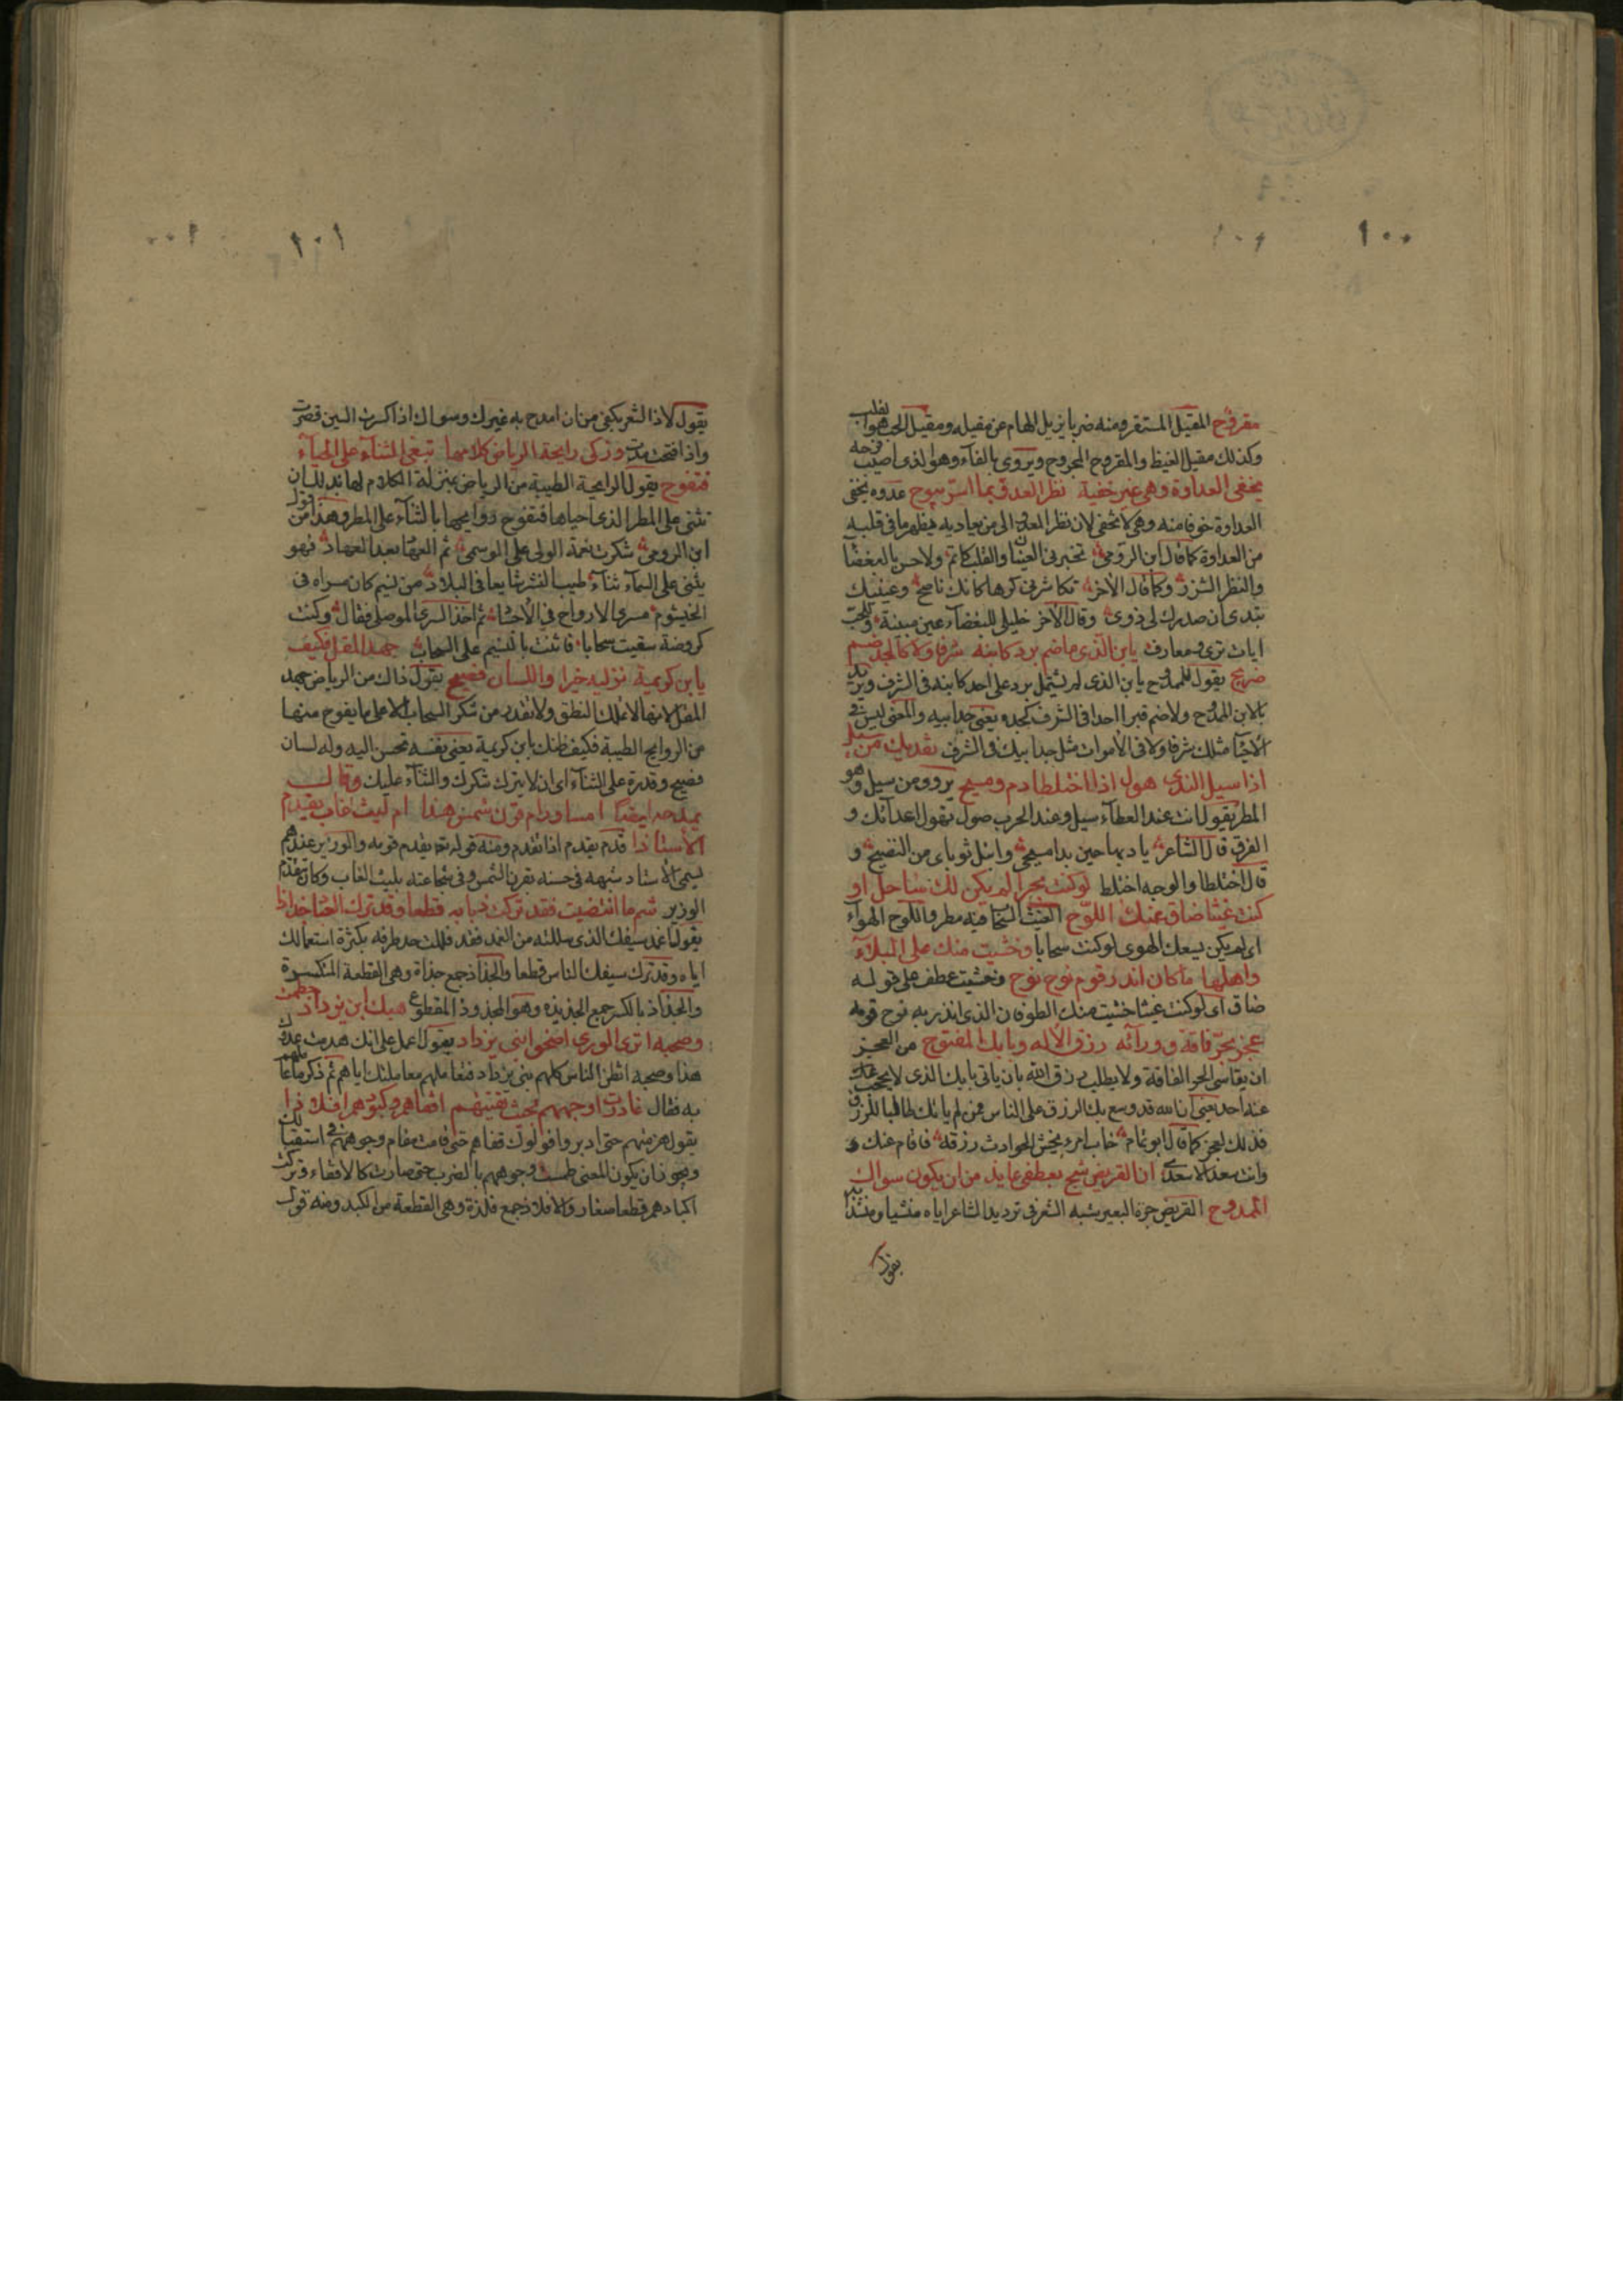 ١٠٠
مقروح المقيل المستقر ومنه ضربا يزيل الهام عن مقيله ومقيل الحب القلب
وكذلك مقيل الغيظ والمقروح المجروح ويروى بالفآء وهو الذى اصيب فرحه
يخفى العداوة وهى غير خفية نظر العدو بما اسر يبوح عدوه يخفى
العداوة خوفا منه وهى لا تخفى لان نظر العدو الى من يعاديه يظهر ما فى قلبه
من العداوة كما قال ابن الرومى تخبرنى العينان والقلب كاتم ولا حن بالبغضآ
والنظر الشزر وكما قال الاخر تكاشرنى كرها كانك ناصح وعينيك
تبدى ان صدرك لى دوى وقال الاخر خليلى للبغضآء عين مبينة وللحب
ايات ترى ومعارف يابن الذى ما ضم برد كابنه شرفا ولا كالجد ضم
ضريح يقول للممدوح يابن الذى لم يشتمل برد على احد كابنه فى الشرف ويريد
بالابن الممدوح ولا ضم قبر احدا فى الشرف كجده يعنى جد ابيه والمعنى ليس فى
الاحيآ مثلك شرفا ولا فى الاموات مثل جد ابيك فى الشرف نفديك من سيل
اذا سيل الندى هول اذا اختلطا دم ومسيح يروو من سيل وهو
المطر يقول انت عند العطآء سيل وعند الحرب هول تهول اعدآئك و
العرق قال الشاعر ياديها حين بدا مسيحى وابتل ثوباى من النضيح و
قال اختلطا والوجه اختلط لو كنت بحرا لم يكن لك ساحل او
كنت غيثا ضاق عنك اللوح الغيث السحاب فيه مطر واللوح الهوآء
اى لم يكن يسعك الهوى لو كنت سحابا وخشيت منك على البلاد
واهلها ما كان انذر قوم نوح نوح وخشيت عطف على قوله
ضاق اى لو كنت غيثا خشيت منك الطوفان الذى انذر به نوح قومه
عجز بحر فاقة وورآئه رزق الاله وبابك المفتوح من العجز
ان يقاسى الحر الفاقة ولا يطلب رزق الله بان ياتى بابك الذى لا يحجب عنك
عنه احد يعنى ان الله قد وسع بك الرزق على الناس فمن لم ياتك طالبا للرزق
فذلك لعجز كما قال ابو تمام خاب امرء بخس الحوادث رزقه فاقام عنك و
وانت سعد الاسعد ان القريض شج بعطفى عايذ من ان يكون سواك
الممدوح القريض جرة البعير يشبه الشعر فى ترديد الشاعر اياه منشيا ومنشدا
يقول
١٠١
يقول لاذ الشعر بكنفى من ان امدح به غيرك وسواك اذا كسرت السين قصرت
واذا فتحت مددت وذكى رايحة الرياض كلامها تبغى الثنآء على الحيآء
فتفوح يقول الرايحة الطيبة من الرياض بمنزلة الكلام لها تريد ان
تثنى على المطر الذى احياها فتفوح روايحها بالثنآء على المطر وهذا من قول
ابن الرومى شكرت نعمة الولى على الوسمى ثم العهاد بعد العهاد فهو
يثنى على السمآء ثنآء طيب النشر شايعا فى البلاد من نسيم كان مسراه فى
الخيشوم مسرى الارواح فى الاجساد ثم اخذ السرى الموصلى فقال وكنت
كروضة سقيت سحابا فاثنت بالنسيم على السحاب جهد المقل فكيف
يابن كريمة توليه خيرا واللسان فصيح يقول ذاك من الرياض جهد
المقل لانها لا تملك النطق ولا تقدر من شكر السحاب الا على ما يفوح منها
من الروايح الطيبة فكيف ظنك بابن كريمة يعنى نفسه تحسن اليه وله لسان
فصيح وقدرة على الثنآء اى ان لا يترك شكرك والثنآء عليك وقال
يمدحه ايضا امساور ام قرن شمس هذا ام ليث غاب يقدم
الاستاذا قدم يقدم اذا تقدم ومنه قوله تعالى يقدم قومه والوزير عندهم
يسمى الاستاد شبهه فى حسنه بقرن الشمس وفى شجاعته بليث الغاب وكان يتقدم
الوزير شم ما انتضيت فقد تركت ذبابه قطعا وقد ترك العباد جذاذا
يقول اغمد سيفك الذى سللته من الغمد فقد فللت حد طرفه بكثرة استعمالك
اياه وقد ترك سيفك الناس قطعا والجذاذ جمع جذاة وهى القطعة المنكسرة
والجذاذ بالكسر جمع الجذيذه وهو المجذوذ المقطوع هبك ابن يزداذ حطمت
وصحبه اترى الورى اضحوا بنى يزداد يقول اعمل على انك هدمت عدوك
هذا وصحبه اتظن الناس كلهم بنى يزداد فتعاملهم معاملتك اياهم ثم ذكر ما عاملهم
به فقال غادرت اوجههم بحيث لقيتهم اقفاءهم وكبودهم افلاذا
يقول هزمتهم حتى ادبروا فولوك قفاهم حتى قامت مقام وجوههم فى استقبالك
ويجوز ان يكون المعنى طمست وجوههم بالضرب حتى صارت كالاقفاء وتركت
اكبادهم قطعا صغار والافلاذ جمع فلذة وهى القطعة من الكبد ومنه قول